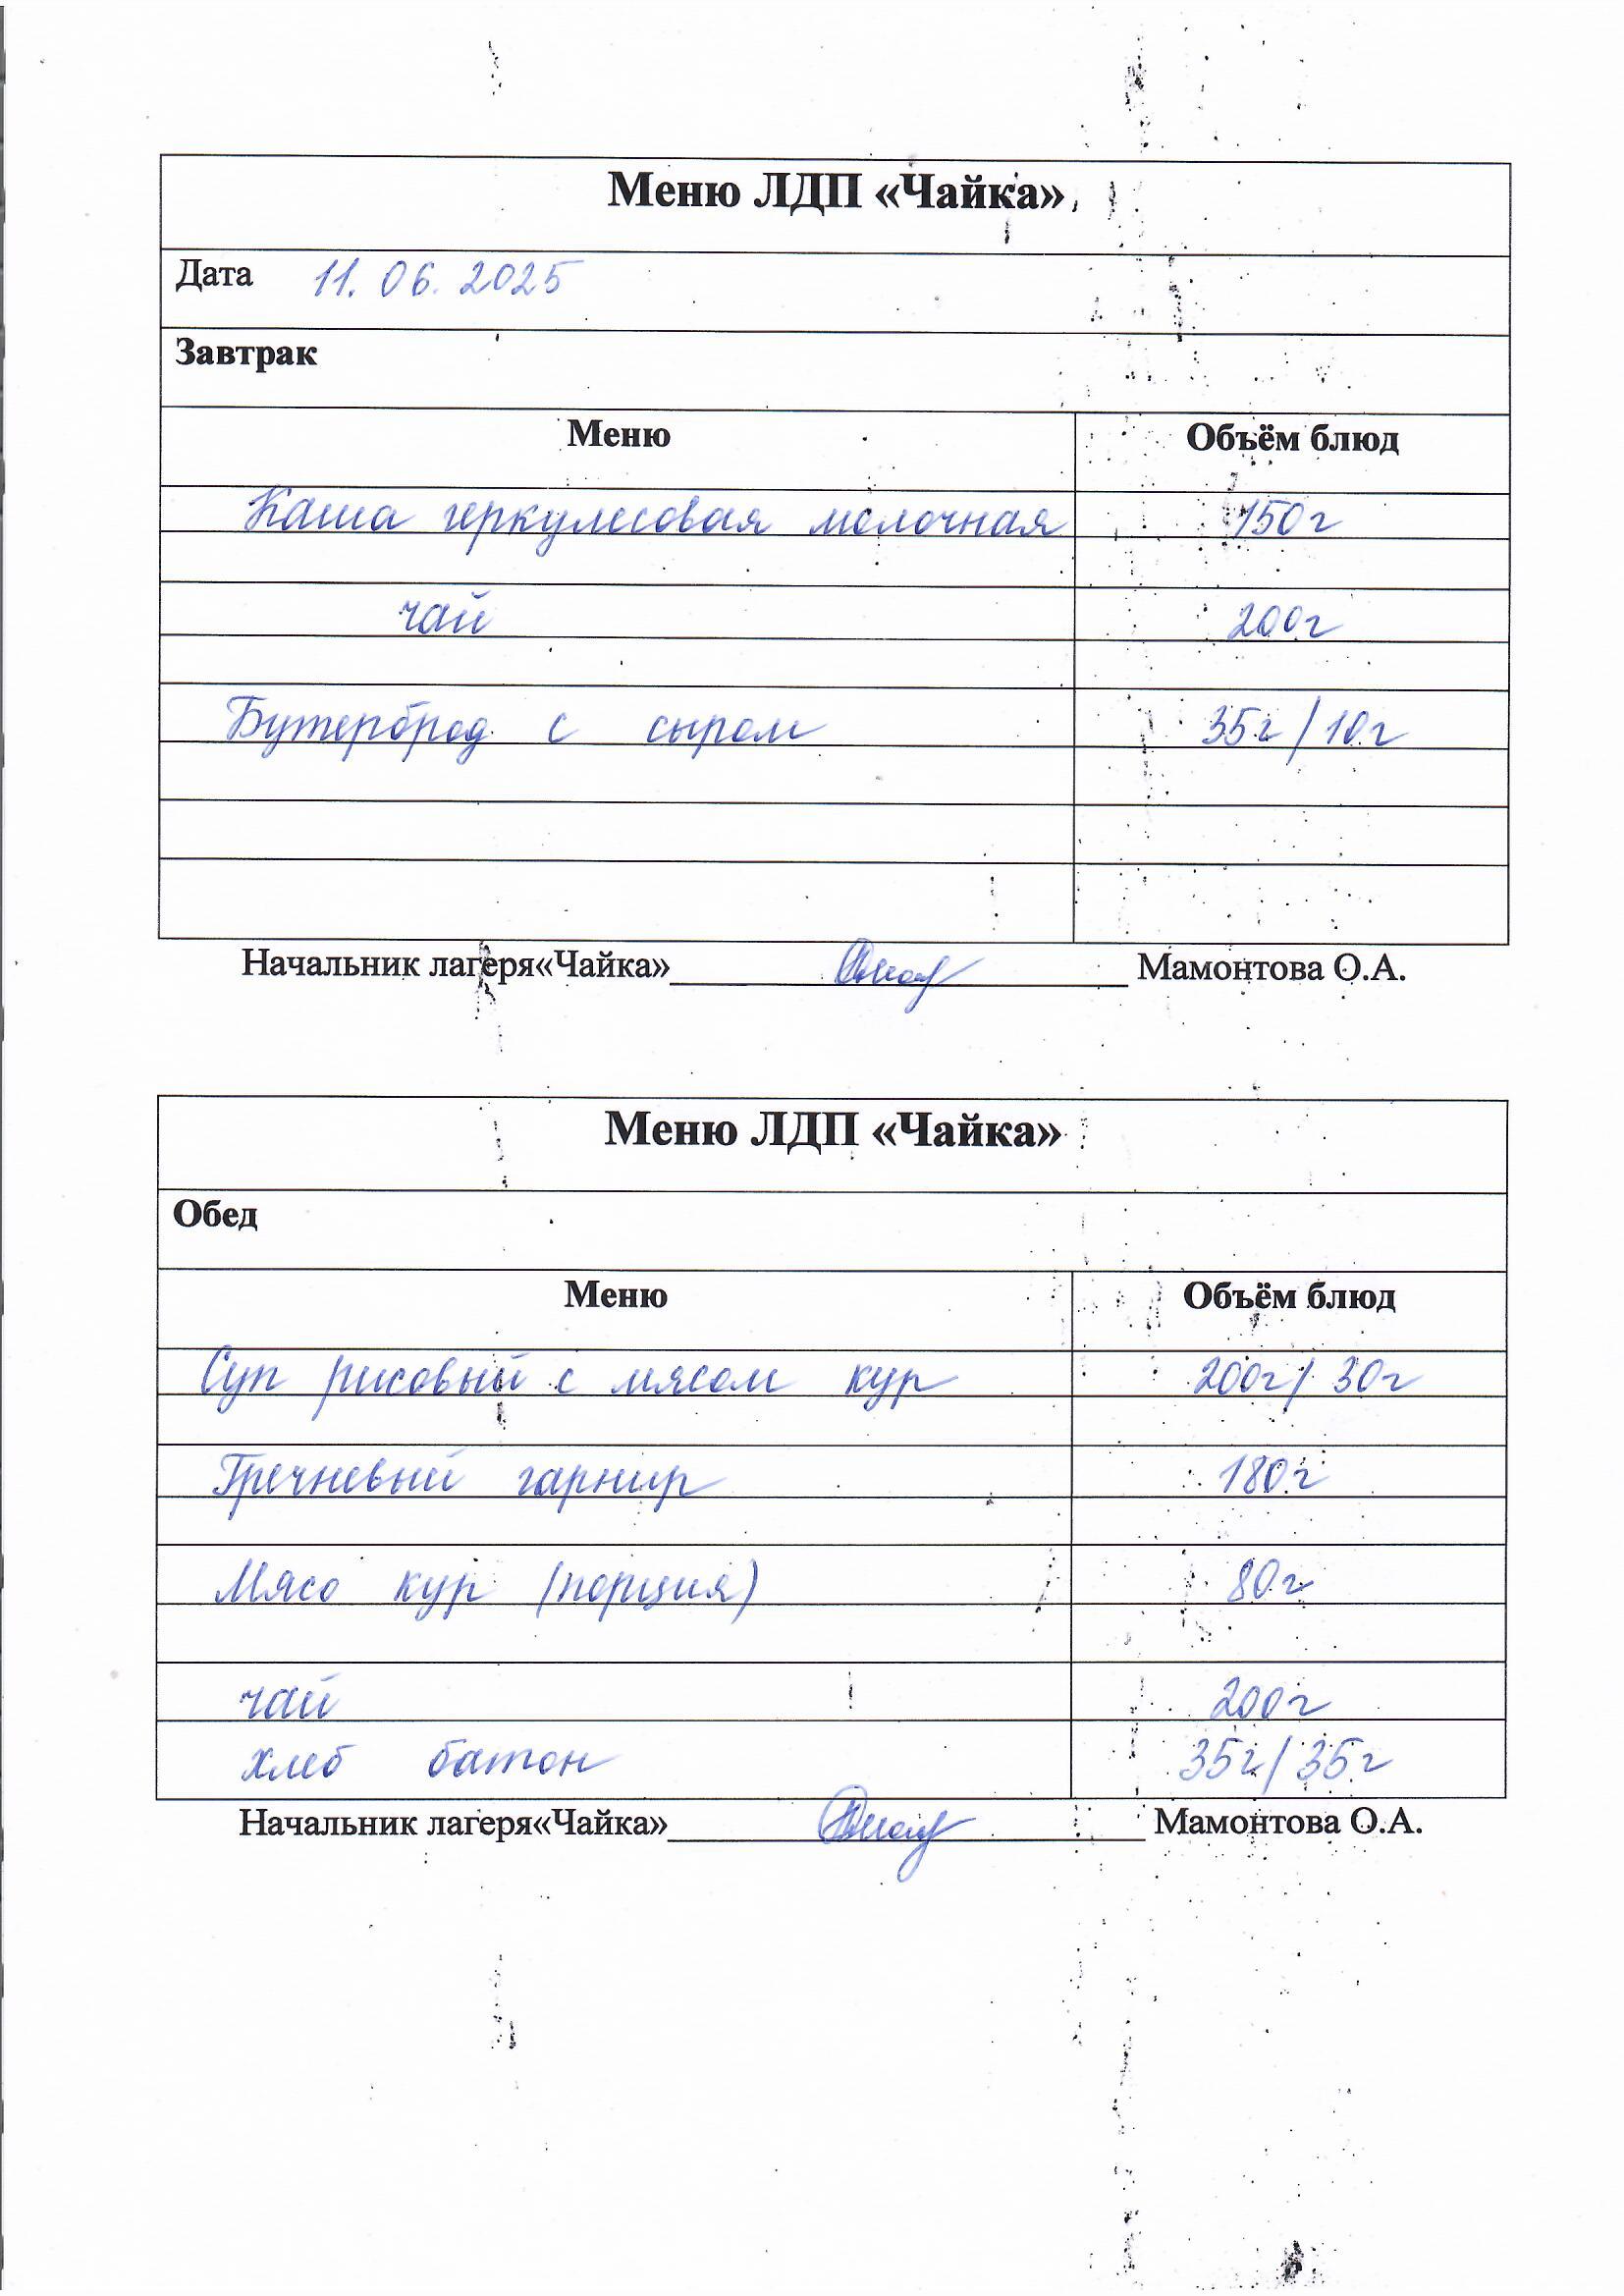 Меню ЛДП «Чайка»
Дата 11. 06. 2025
Завтрак
Меню Объём блюд
Каша геркулесовая молочная 150г
чай 200г
Бутерброд с сыром 35г/10г
Начальник лагеря«Чайка» Мамонтова О.А.
Меню ЛДП «Чайка»
Обед
Меню Объём блюд
Суп рисовый с мясом кур 200г/30г
Гречневый гарнир 180г
Мясо кур (порция) 80г
чай 200г
хлеб батон 35г/35г
Начальник лагеря«Чайка» Мамонтова О.А.